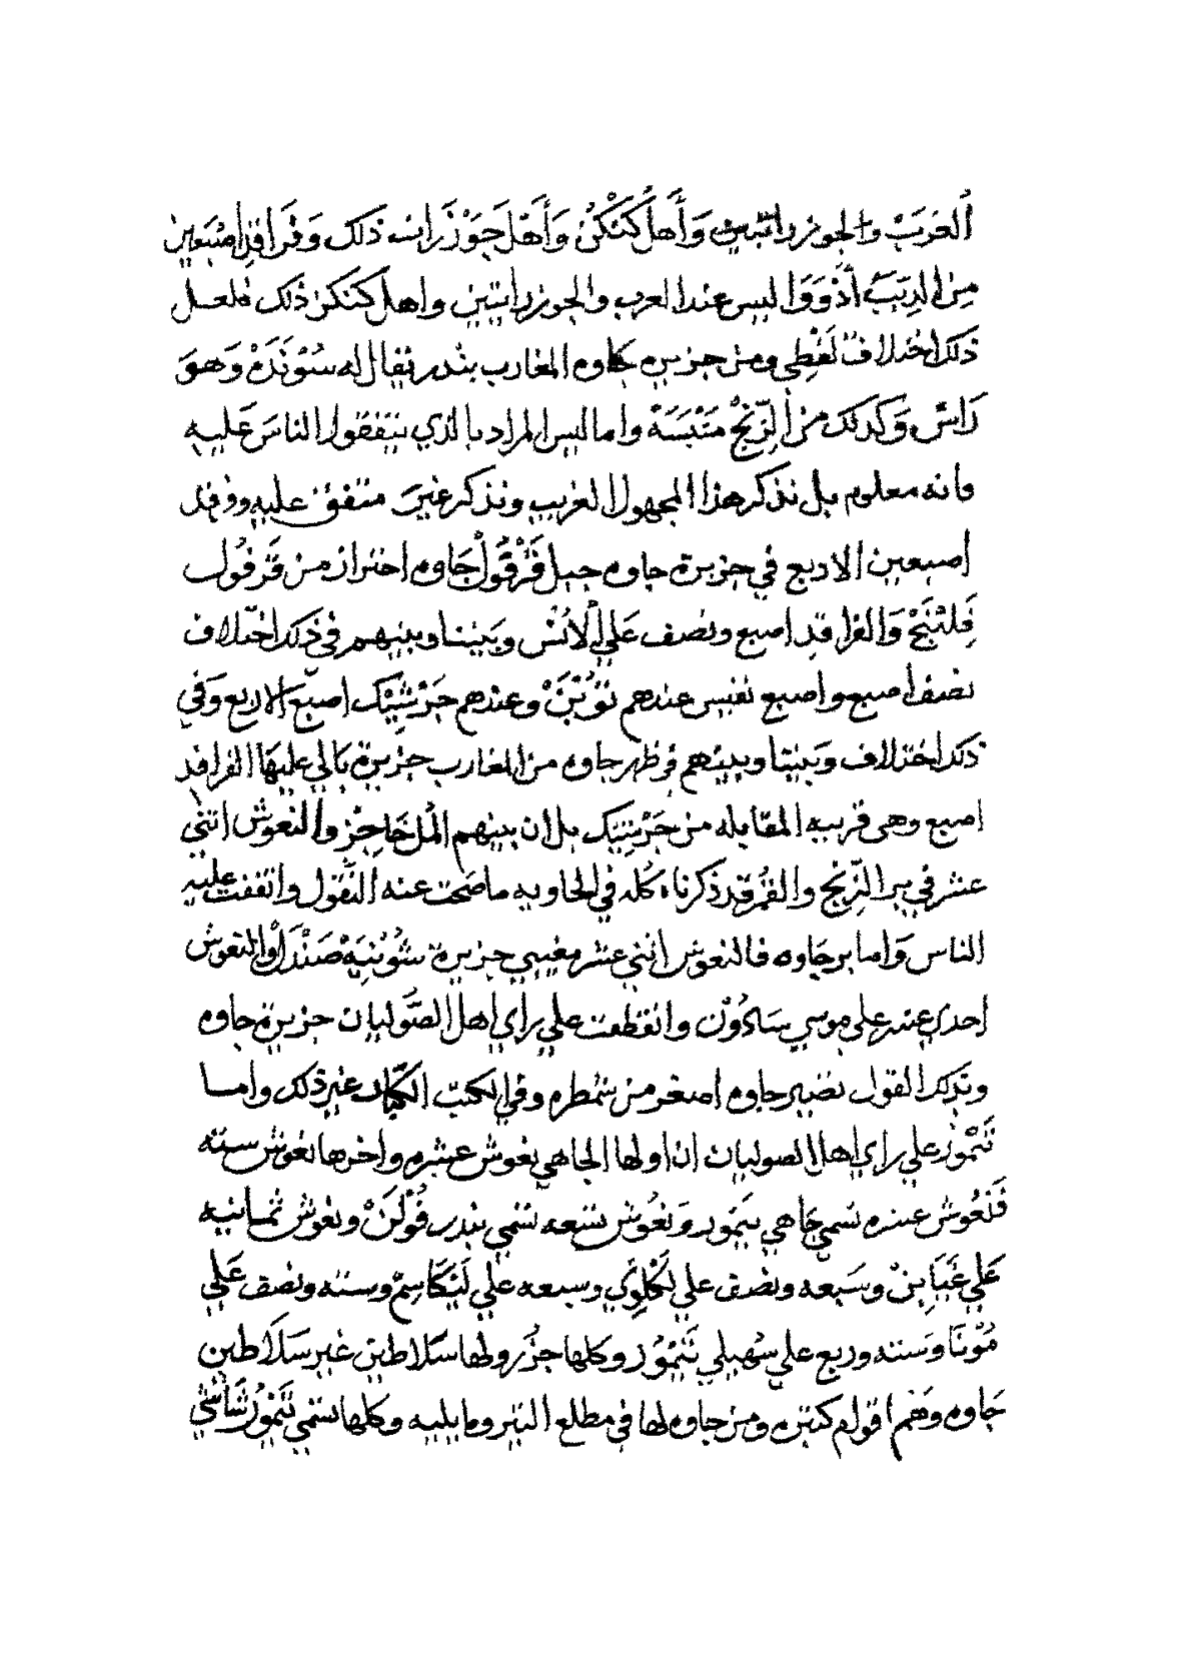 اَلْعَرَبْ والجوزراتيين وَأَهل كَنْكَنْ وَأَهْلَ جَوْزَرَات ذلك وَفَرَاقِد اصْبَعين
مِن الدِيَبْ أَذْوَوَا ليس عند العرب والجوزراتيين واهل كنكن ذلك فلعل
ذلك اختلافٌ لَفْظِي ومن جزيره جاوه المغارب بندر يقال له سُوْنَدَهْ وَهوَ
رَاسٌ وَكذلك من الزِّنْجْ مَنْبَسَهْ واما ليس المراد بالذي يتفقوا الناسَ عَليه
وانه معلوم بل نذكر هذا المجهول الغريب ونذكر غير متفق عليه وفرقد
اصبعين الا ربع في جزيرة جاوه جبل قَرْقُولْ جَاوه احتراز من قَرْفُول
فَلنْبَجْ وَالفراقد اصبع ونصف عَلي اَلانْسْ وبَيننا وبينهم في ذلك اختلاف
نصف اصبع واصبع نفيس عندهم تُوْبَنْ وعندهم جَرْشِيْك اصبَع الا ربع وَفي
ذلك اختلاف وبَيننا وبينهم في ظهر جاوه من المغارب جزيرة بَالي عليهَا الفراقد
اصبع وهي قريبه المقابله من جَرْشِيْك بل ان بينهم المْل حَاجِزْ والنعوش اثني
عشر في بر الزِّنْج والقُمْر قد ذكرناه كُله في الحاويه ما صَحت عنه النُّقول واتفقت عليه
الناس وَاما بر جَاوه فالنعوش اثني عشر مغيبي جزيرة شُوْنْيَهْ صَنْدَلْ والنعوش
احدي عشر علي موسي سَادُوْن وانقطعت علي راي اهل الصُّوليان جزيرة جاوه
وبذلك القول تصير جاوه اصغر من شمطره وفي الكتب الكبَار غير ذلك واما
تَيْمُوْر علي راي اهل الصوليان ان اولها الجاهي نعوش عشره واخرها نعوش سته
فَنَعُوش عشره تسمي جَاهي تيمُور وَنعُوش تسعه تسمي بندر فُوْلَنْ ونعوش ثمانيه
عَلي غَبَابِنْ وسَبعه ونصف علي لَكْلِوَي وسبعه علي لَيْكَاسِمْ وسته ونصف عَلي
مُوْنَا وَسته وربع علي سُهيلي تَيْمُوْر وكلها جزُر ولها سَلاطين غير سَلاَطين
جَاوه وَهُم اقوام كثيره ومن جاوه لها في مطلع التير وما يليه وكلها تسمي تَيْمُوْرْ شَاشي